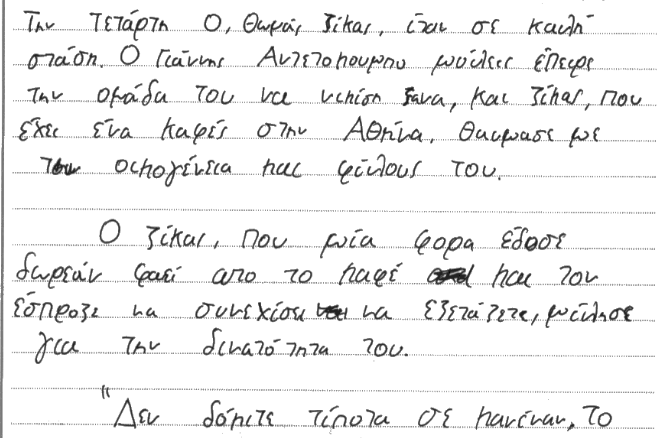 Την Τετάρτη Ο, Θωμάς Ζίκας, είταν σε καλή
στάση. Ο Γιάννης Αντετοκουμπο μούλιες έπειρε
την ομάδα του να νικίση ξανα, και Ζίκας, που
έχει ένα καφές στην Αθήνα, θαυμασε με
την οικογένεια και φίλους του.
Ο Ζίκας, που μία φορα έδοσε
δωρεάν φαεί απο το καφέ και τον
έσπροξε να συνεχίσει να εξετάζετε, μίλησε
για την δινατότητα του.
"Δεν δόπιτε τίποτα σε κανέναν, το